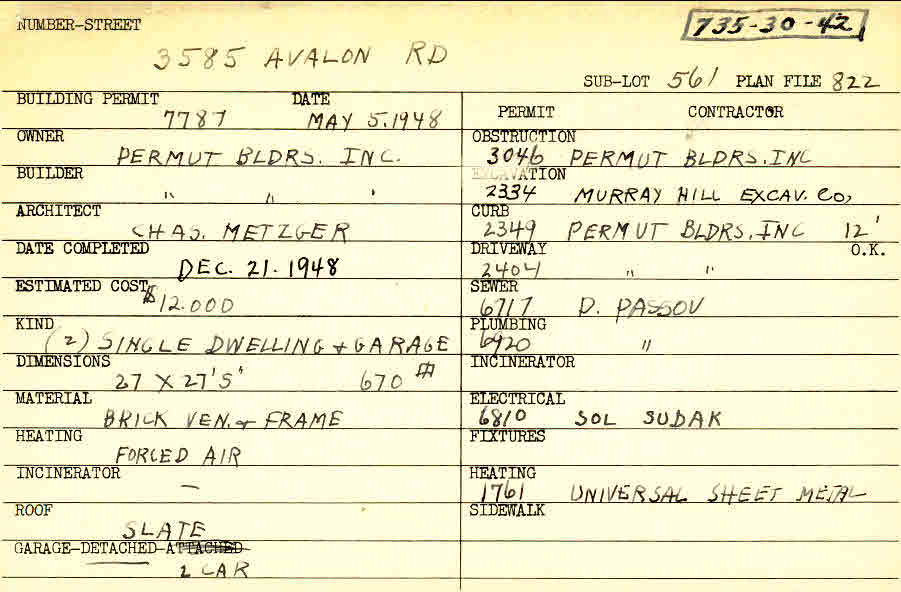 NUMBER-STREET
735-30-42
3585 AVALON RD
SUB-LOT 561 PLAN FILE 822
BUILDING PERMIT DATE
7787 MAY 5, 1948
OWNER
PERMUT BLDRS. INC.
BUILDER
" " '
ARCHITECT
CHAS. METZGER
DATE COMPLETED
DEC. 21. 1948
ESTIMATED COST
$12.000
KIND
(2) SINGLE DWELLING & GARAGE
DIMENSIONS
27 X 27'5" 670 #
MATERIAL
BRICK VEN. & FRAME
HEATING
FORCED AIR
INCINERATOR
—
ROOF
SLATE
GARAGE-DETACHED-ATTACHED
2 CAR
PERMIT CONTRACTOR
OBSTRUCTION
3046 PERMUT BLDRS. INC
EXCAVATION
2334 MURRAY HILL EXCAV. CO,
CURB
2349 PERMUT BLDRS. INC 12'
DRIVEWAY O.K.
2404 " "
SEWER
6717 D. PASSOV
PLUMBING
6920 "
INCINERATOR
ELECTRICAL
6810 SOL SUDAK
FIXTURES
HEATING
1761 UNIVERSAL SHEET METAL
SIDEWALK